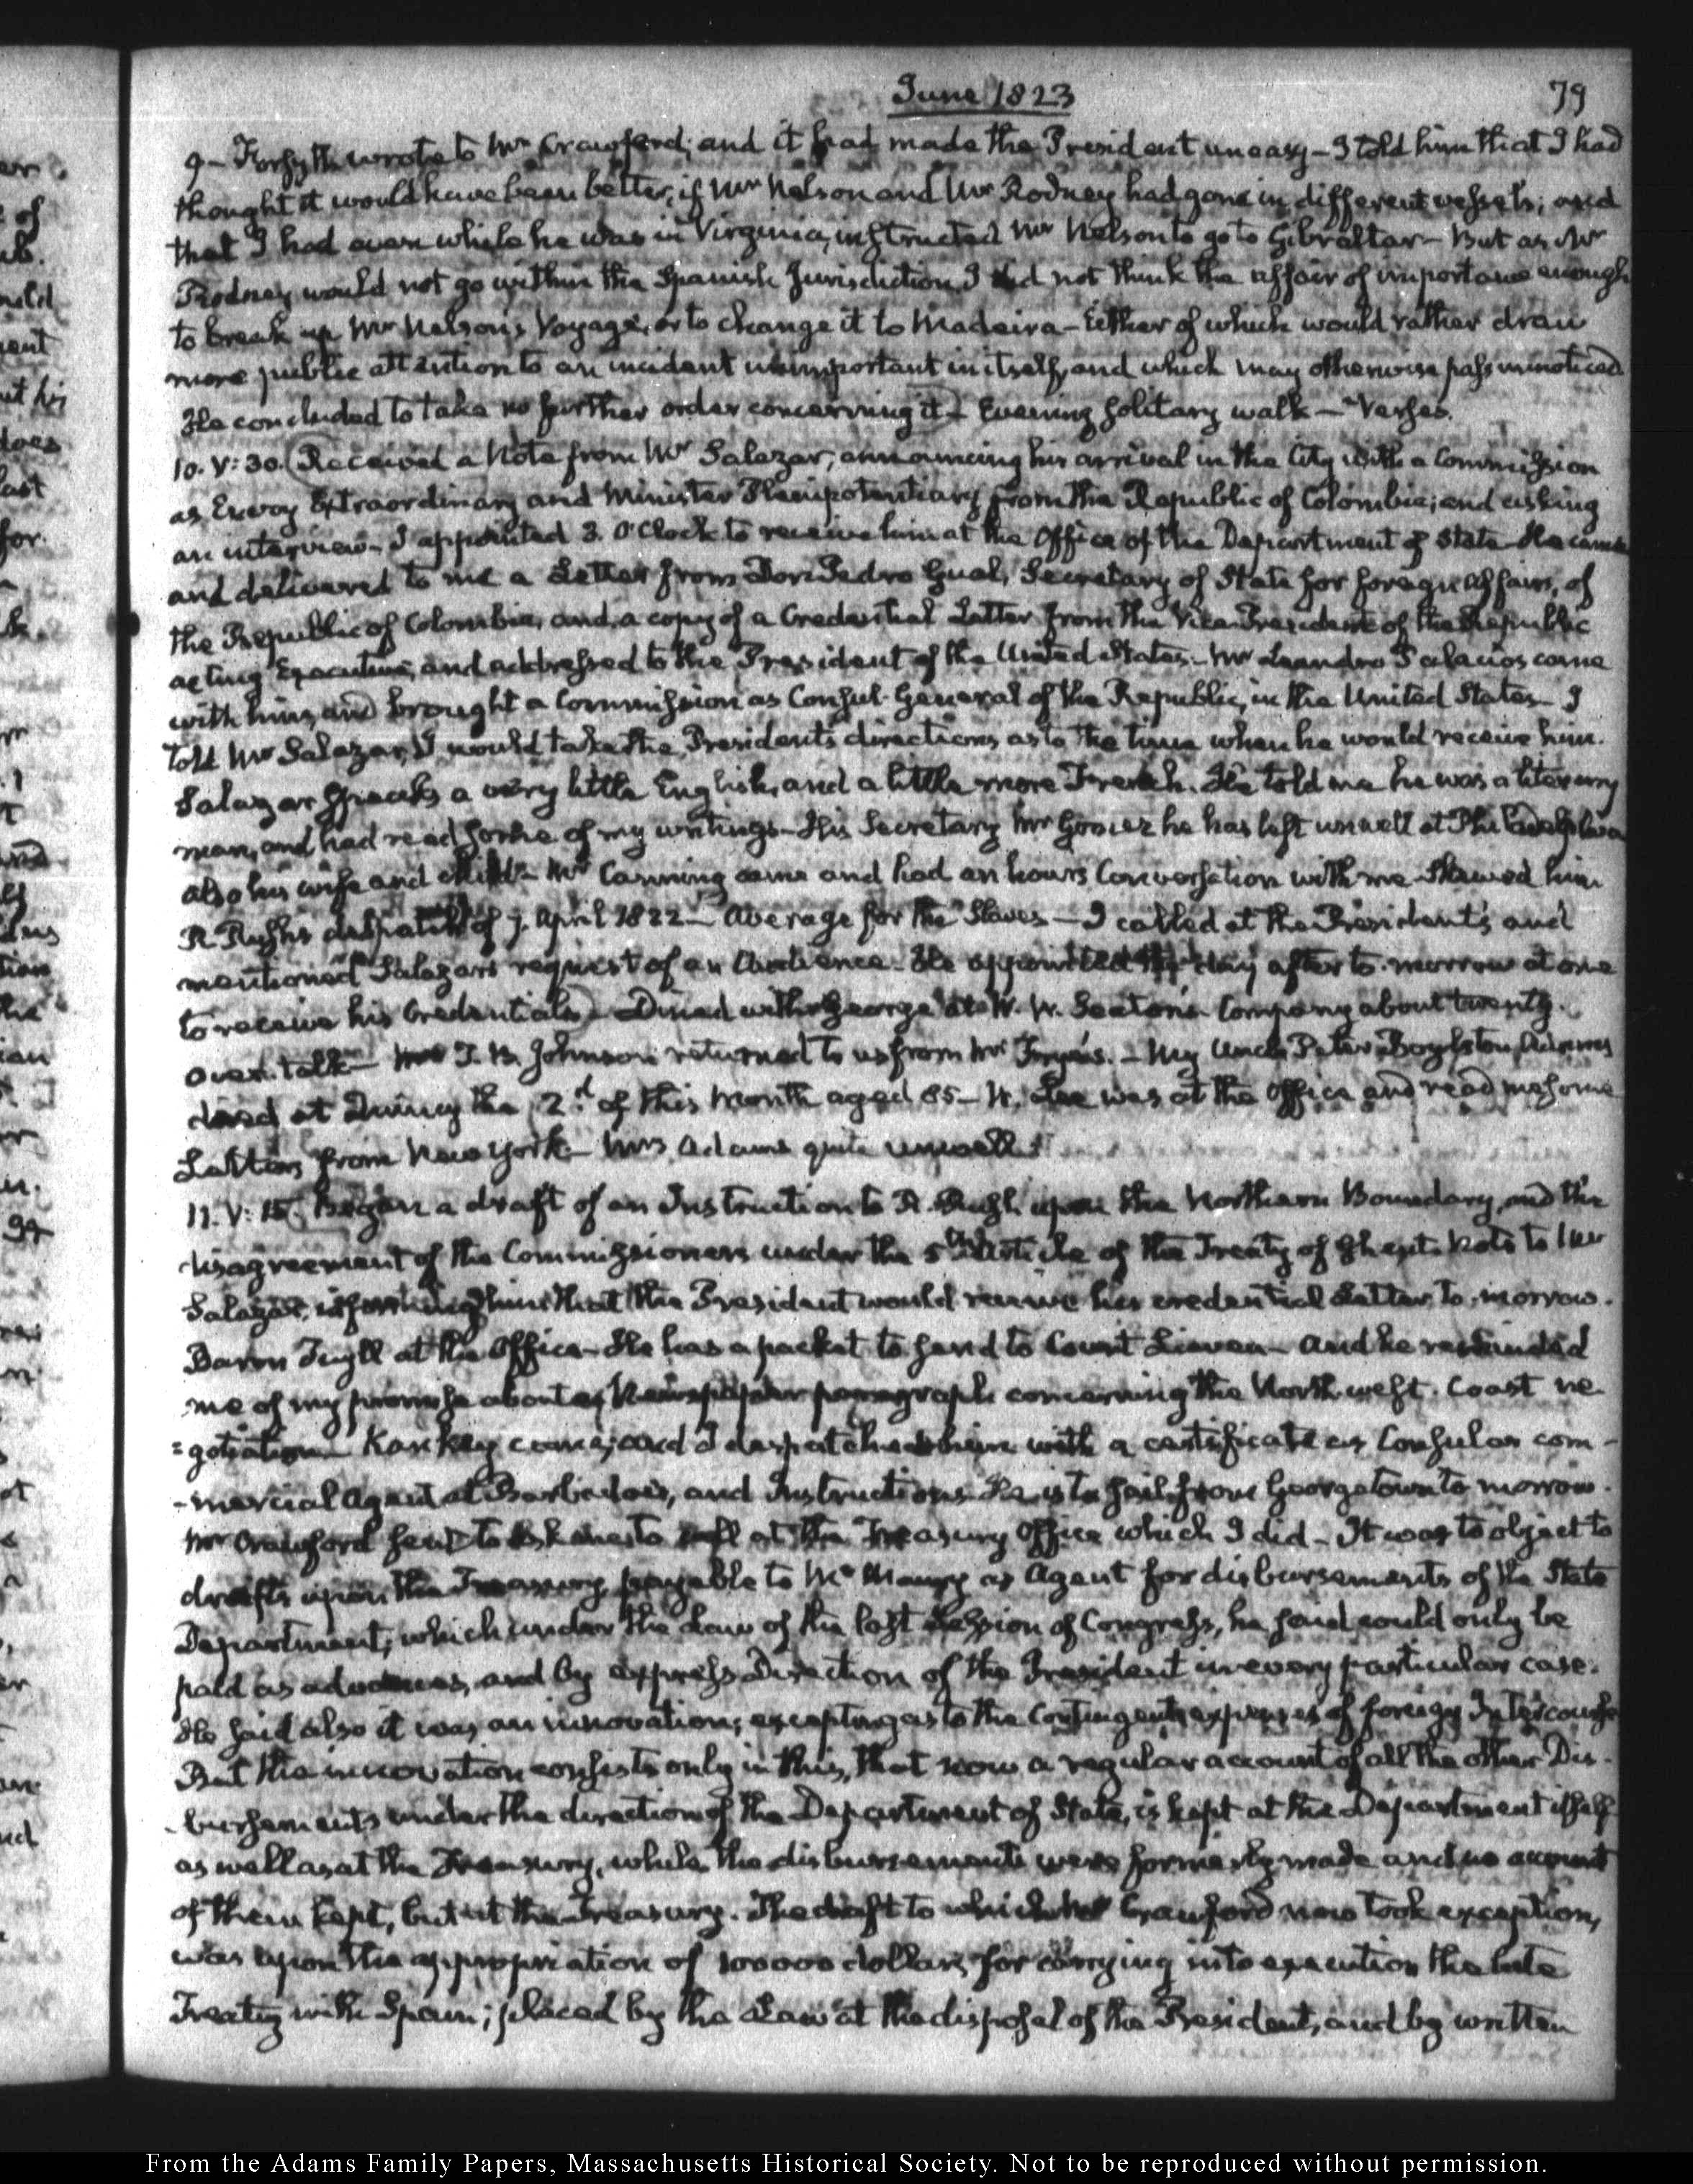 June 1823
79
9– Forsyth wrote to Mr Crawford; and it had made the President uneasy– I told him that I had
thought it would have been better, if Mr Nelson and Mr Rodney had gone in different vessels; and
that I had even while he was in Virginia, instructed Mr Nelson to go to Gibraltar– But as Mr
Rodney would not go within the Spanish Jurisdiction I did not think the affair of importance enough
to break up Mr Nelson's Voyage, or to change it to Madeira– Either of which would rather draw
more public attention to an incident unimportant in itself, and which may otherwise pass unnoticed
He concluded to take no further order concerning it– Evening solitary walk– Verses.
10. V:30. Received a Note from Mr Salazar, announcing his arrival in the City with a Commission
as Envoy Extraordinary and Minister Plenipotentiary from the Republic of Colombia; and asking
an interview– I appointed 3. O'Clock to receive him at the Office of the Department of State– He came
and delivered to me a Letter from Don Pedro Gual, Secretary of State for foreign affairs, of
the Republic of Colombia, and a copy of a Credential Letter from the Vice-President of the Republic
acting Executive, and addressed to the President of the United States– Mr Leandro Palacios came
with him, and brought a Commission as Consul-General of the Republic, in the United States– I
told Mr Salazar, I would take the President's directions as to the time when he would receive him.
Salazar speaks a very little English, and a little more French. He told me he was a literary
man, and had read some of my writings– His Secretary Mr Gomez he has left unwell at Philadelphia
also his wife and child– Mr Canning came and had an hours Conversation with me– Shewed him
R. Rush's despatch of April 1822– Average for the Slaves– I called at the President's and
mentioned Salazar's request of an Audience– He appointed the day after to-morrow at one
to receive his Credentials– Dined with George at W. W. Seaton's Company about twenty.
over. talk– T. B. Johnson returned to us from Mr Frye's.– My Uncle Peter Boylston Adams
died at Quincy the 2.d of this Month aged 85– W. Lee was at the Office and read me some
Letters from New York– Mrs Adams quite unwell.
11. V:15. Began a draft of an Instruction to R. Rush upon the Northern Boundary, and the
disagreement of the Commissioners under the 5th Article of the Treaty of Ghent. Note to Mr
Salazar, informing him that the President would receive his credential Letter to-morrow.
Baron Tuyll at the Office– He has a packet to send to Count Lieven– and he reminded
me of my promise about a Newspaper paragraph concerning the North-west. Coast ne
=gotiation– Kankey came; and I despatched him with a certificate as Consular com-
-mercial Agent at Barbadoes, and Instructions. He is to sail from Georgetown to morrow.
Mr Crawford sent to ask me to call at the Treasury Office which I did– It was to object to
drafts upon the Treasury, payable to Mr Maury as Agent for disbursements of the State
Department; which under the Law of the last Session of Congress, he said could only be
paid as advances, and by express Direction of the President in every particular case.
He said also it was an innovation; excepting as to the Contingent expenses of foreign Intercourse
But the innovation consists only in this, that now a regular account of all the other Dis-
-bursements under the direction of the Department of State, is kept at the Department itself
as well as at the Treasury, while the disbursements were formerly made and no account
of them kept, but at the Treasury. The draft to which Mr Crawford now took exception,
was upon the appropriation of 100000 dollars, for carrying into execution the late
Treaty with Spain; placed by the Law at the disposal of the President, and by written
From the Adams Family Papers, Massachusetts Historical Society. Not to be reproduced without permission.